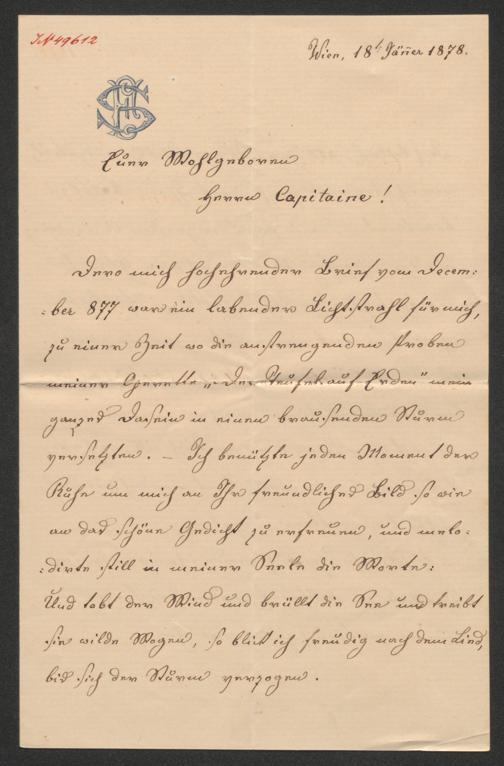 IN 49612
Wien, 18t Jänner 1878.
Euer Wohlgeboren
Herrn Capitaine!
Dero mich hochehrender Brief vom Decem-
:ber 877 war ein labender Lichtstrahl für mich,
zu einer Zeit wo die anstrengenden Proben
meiner Operette „Der Teufel auf Erden" mein
ganzes Dasein in einen brausenden Sturm
versetzten. – Ich benützte jeden Moment der
Ruhe um mich an Ihr freundliches Bild so wie
an das schöne Gedicht zu erfreuen, und melo-
:dirte still in meiner Seele die Worte:
Und tobt der Wind und brüllt die See und treibt
sie wilde Wogen, so blick ich freudig nach dem Lied,
bis sich der Sturm verzogen.